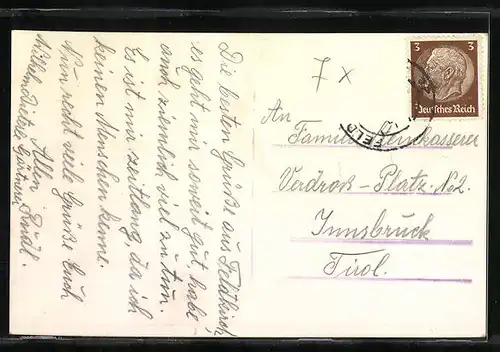 Die besten Grüße aus Feldkirch,
es geht mir soweit gut, habe
auch ziemlich viel zu tun.
Es ist mir zeitlang, da ich
keinen Menschen kenne.
Nun recht viele Grüße Euch
Allen Rudl.
7 x
3 3
Deutsches Reich
FELD
An
Familie
Verdroß-Platz No2.
Innsbruck
Tirol.